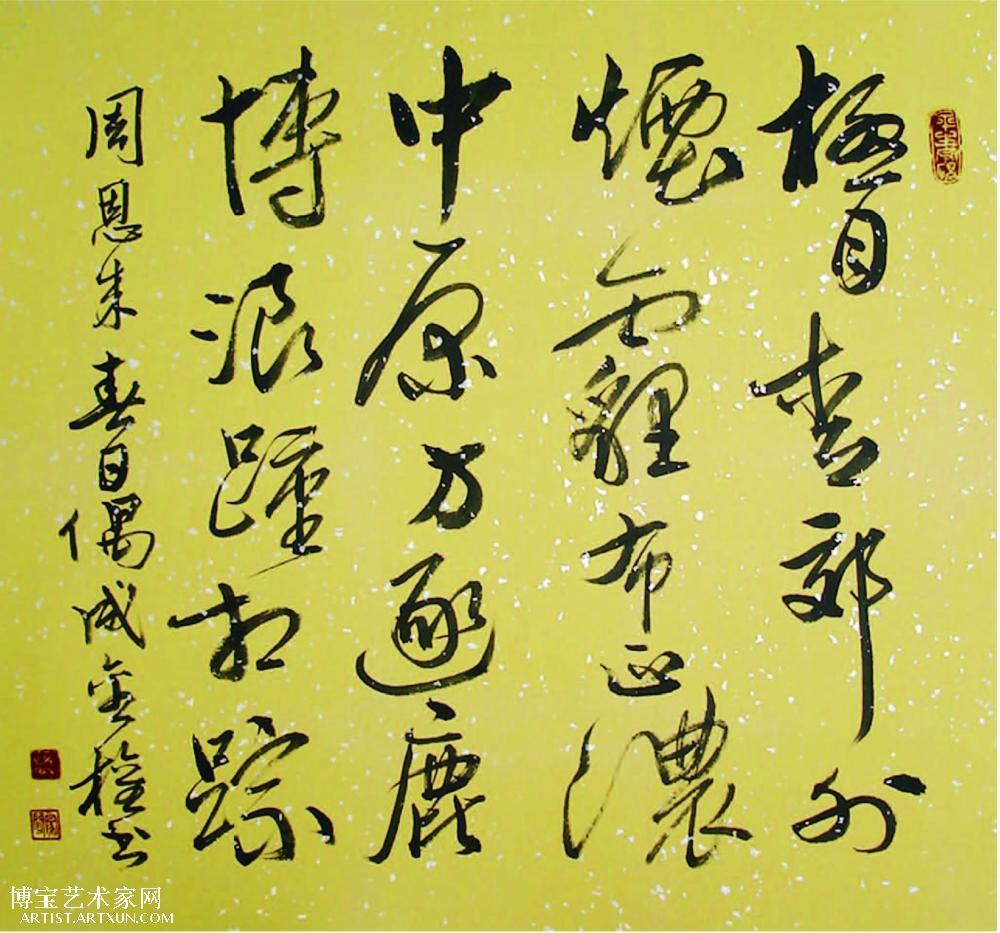 極目青郊外
煙霾布正濃
中原方逐鹿
博浪踵相踪
周恩来春日偶成金书
博宝艺术家网
ARTIST.ARTXUN.COM